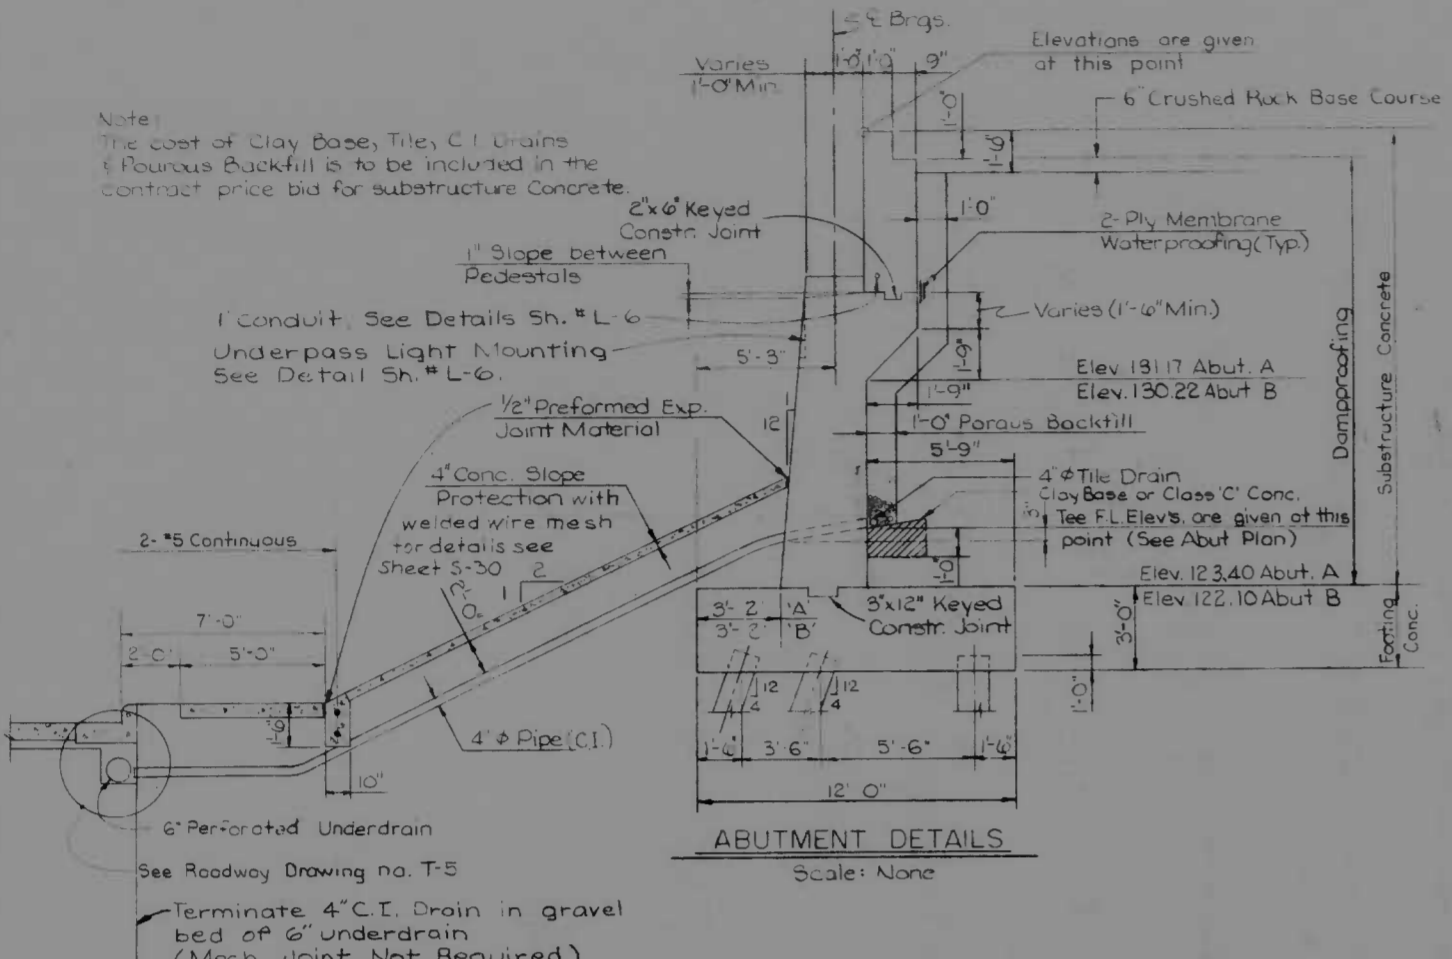 S ℄ Brgs.
Elevations are given
at this point
Varies
1'-0" Min
1'-0"
1'-0"
9"
1'-0"
1'-6"
6" Crushed Rock Base Course
Note:
The cost of Clay Base, Tile, C.I. Drains
& Pourous Backfill is to be included in the
contract price bid for substructure Concrete.
2"x6" Keyed
Constr. Joint
1'-0"
2-Ply Membrane
Waterproofing (Typ.)
1" Slope between
Pedestals
1" Conduit. See Details Sh. # L-6
Underpass Light Mounting
See Detail Sh. # L-6.
Varies (1'-6" Min.)
5'-3"
1'-9"
Elev. 131.17 Abut. A
Elev. 130.22 Abut B
1'-9"
Dampproofing
Substructure Concrete
1/2" Preformed Exp.
Joint Material
1
12
1'-0" Porous Backfill
5'-9"
4" Conc. Slope
Protection with
welded wire mesh
for details see
Sheet S-30
4" ⌀ Tile Drain
Clay Base or Class 'C' Conc.
3"
Tee F.L. Elev's. are given at this
point (See Abut Plan)
2-#5 Continuous
2
1
2'-0"
1'-0"
Elev. 123.40 Abut. A
Elev. 122.10 Abut B
7'-0"
2'-0"
5'-0"
3'-2" 'A'
3'-2" 'B'
3"x12" Keyed
Constr. Joint
3'-0"
Footing
Conc.
12
4
12
4
1'-0"
1'-6"
4" ⌀ Pipe (C.I.)
10"
1'-6"
3'-6"
5'-6"
1'-6"
12'-0"
6" Perforated Underdrain
ABUTMENT DETAILS
See Roadway Drawing no. T-5
Scale: None
Terminate 4" C.I. Drain in gravel
bed of 6" underdrain
(Mech. Joint Not Required)